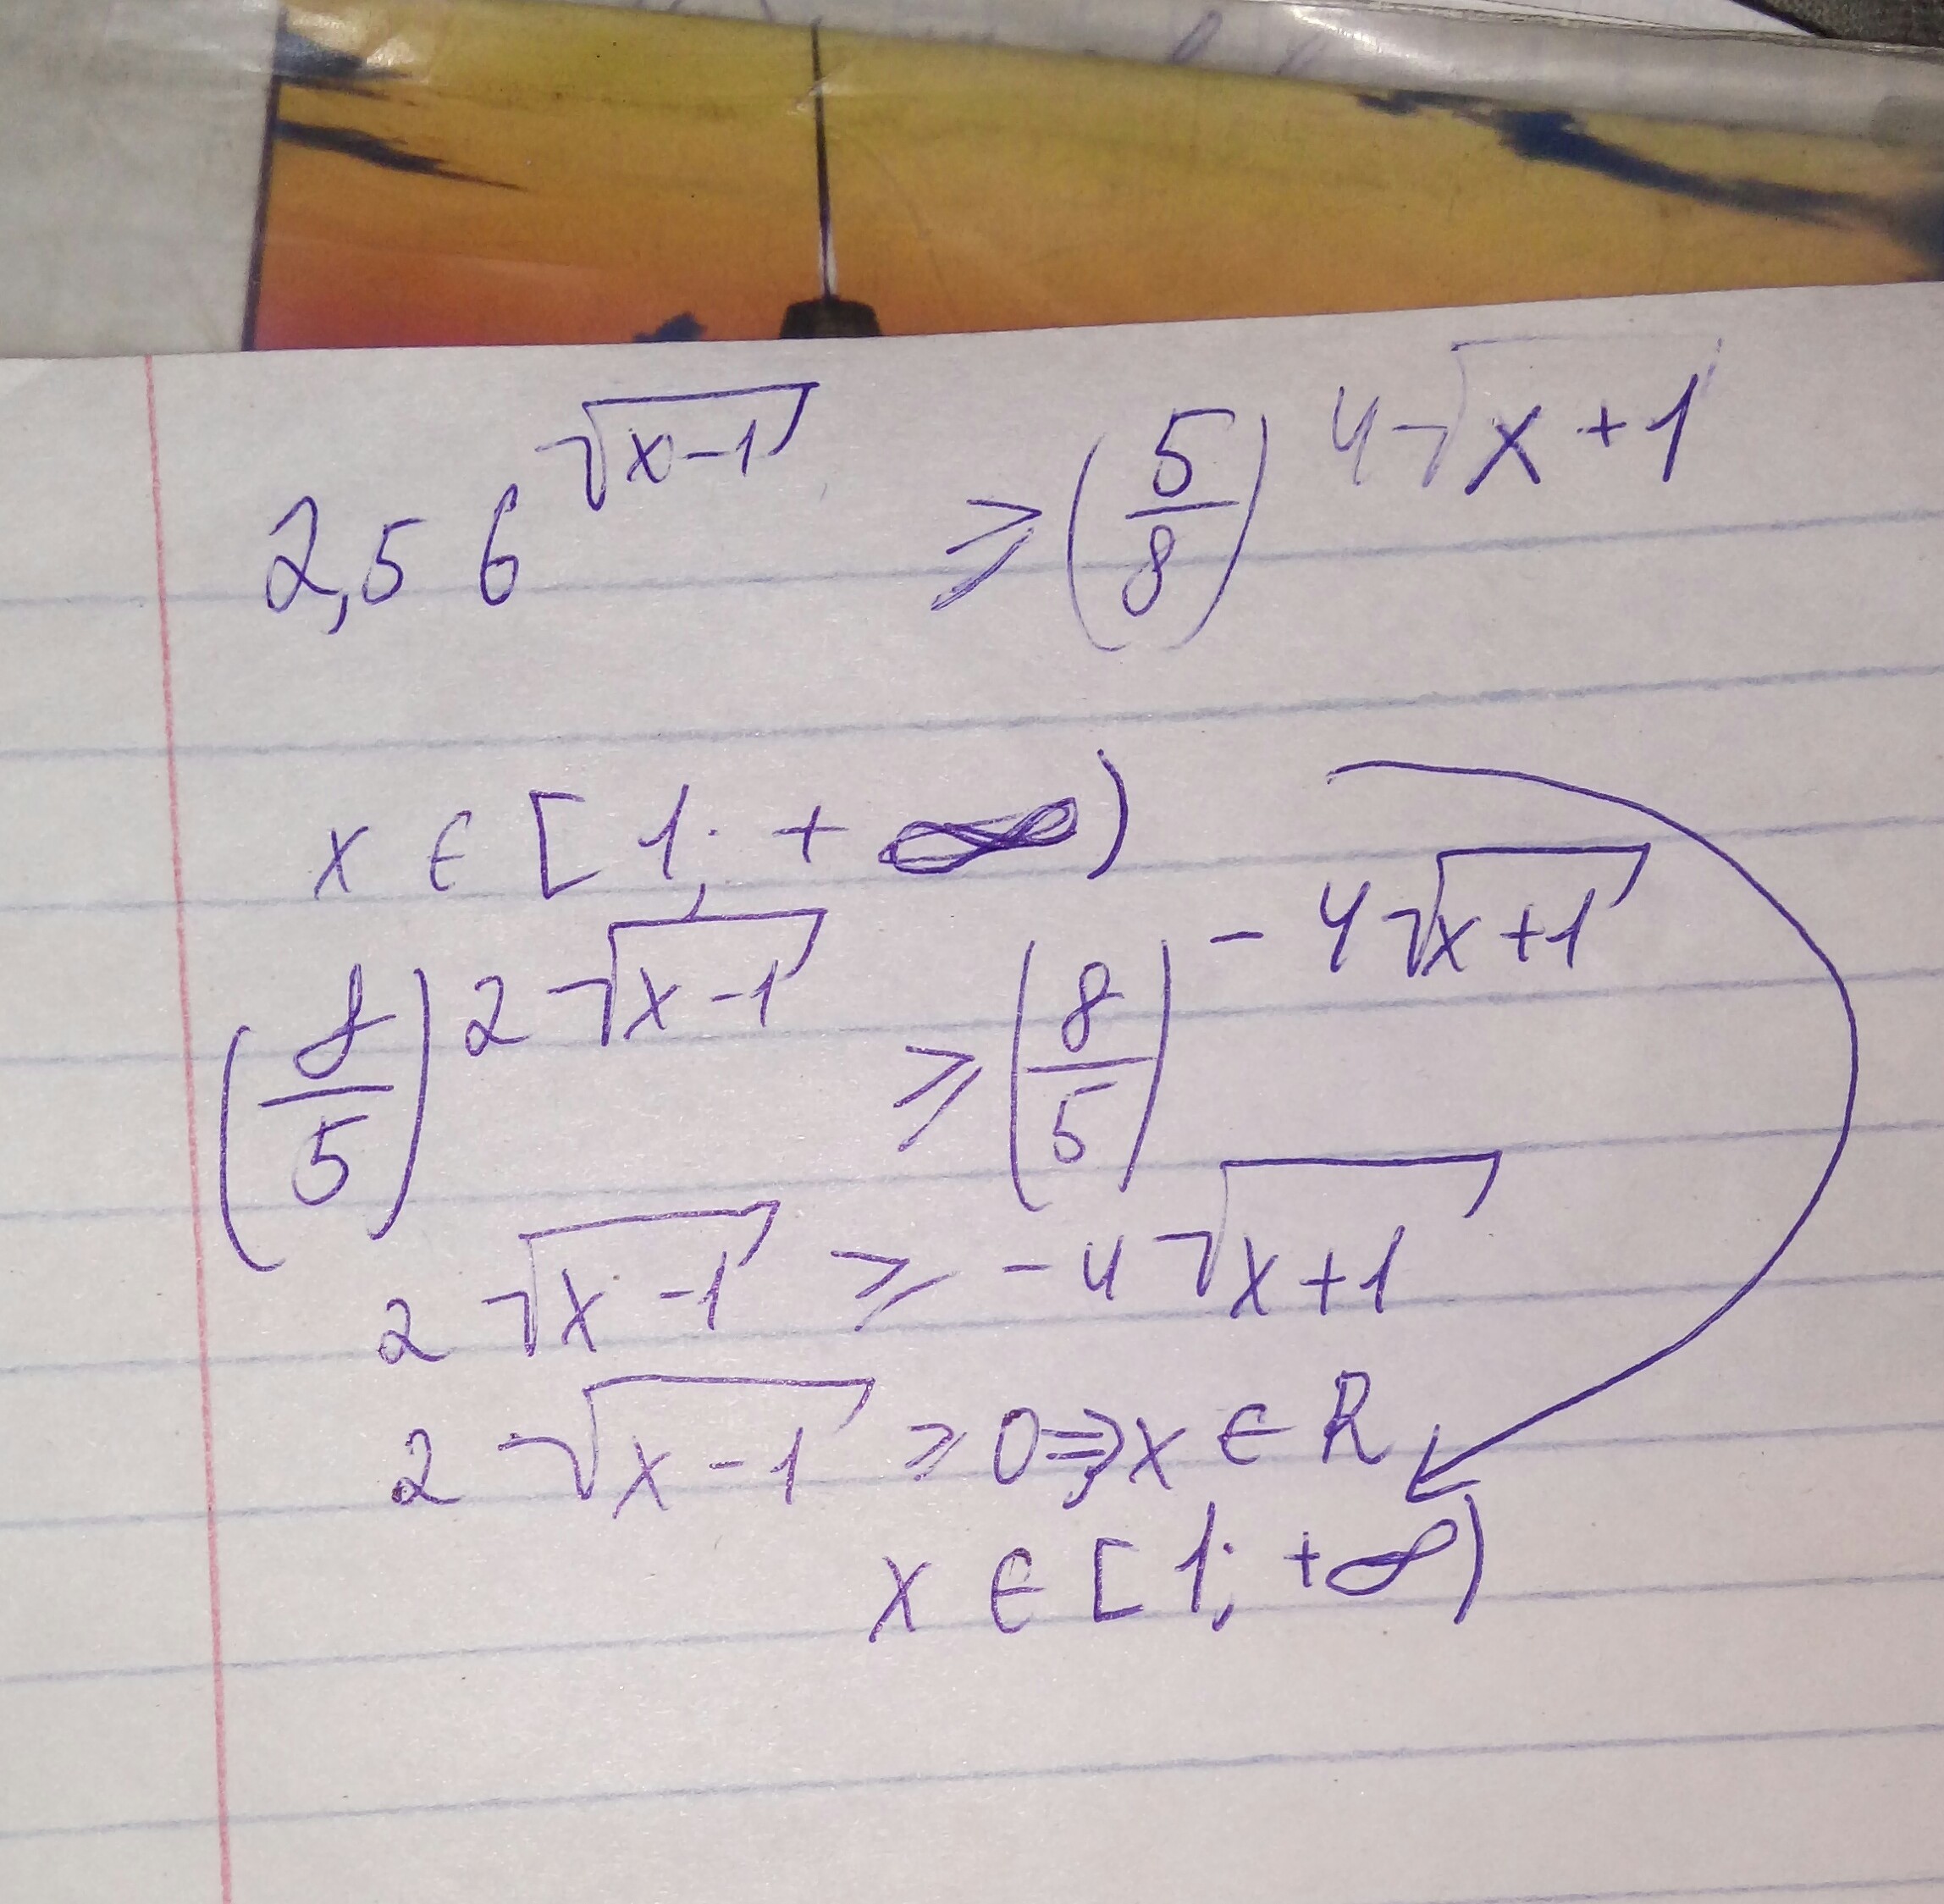 2,56^√(x-1) ≥ (5/8)^4√(x+1)
x ∈ [1; +∞)
(8/5)^2√(x-1) ≥ (8/5)^-4√(x+1)
2√(x-1) ≥ -4√(x+1)
2√(x-1) ≥ 0 ⇒ x ∈ R
x ∈ [1; +∞)